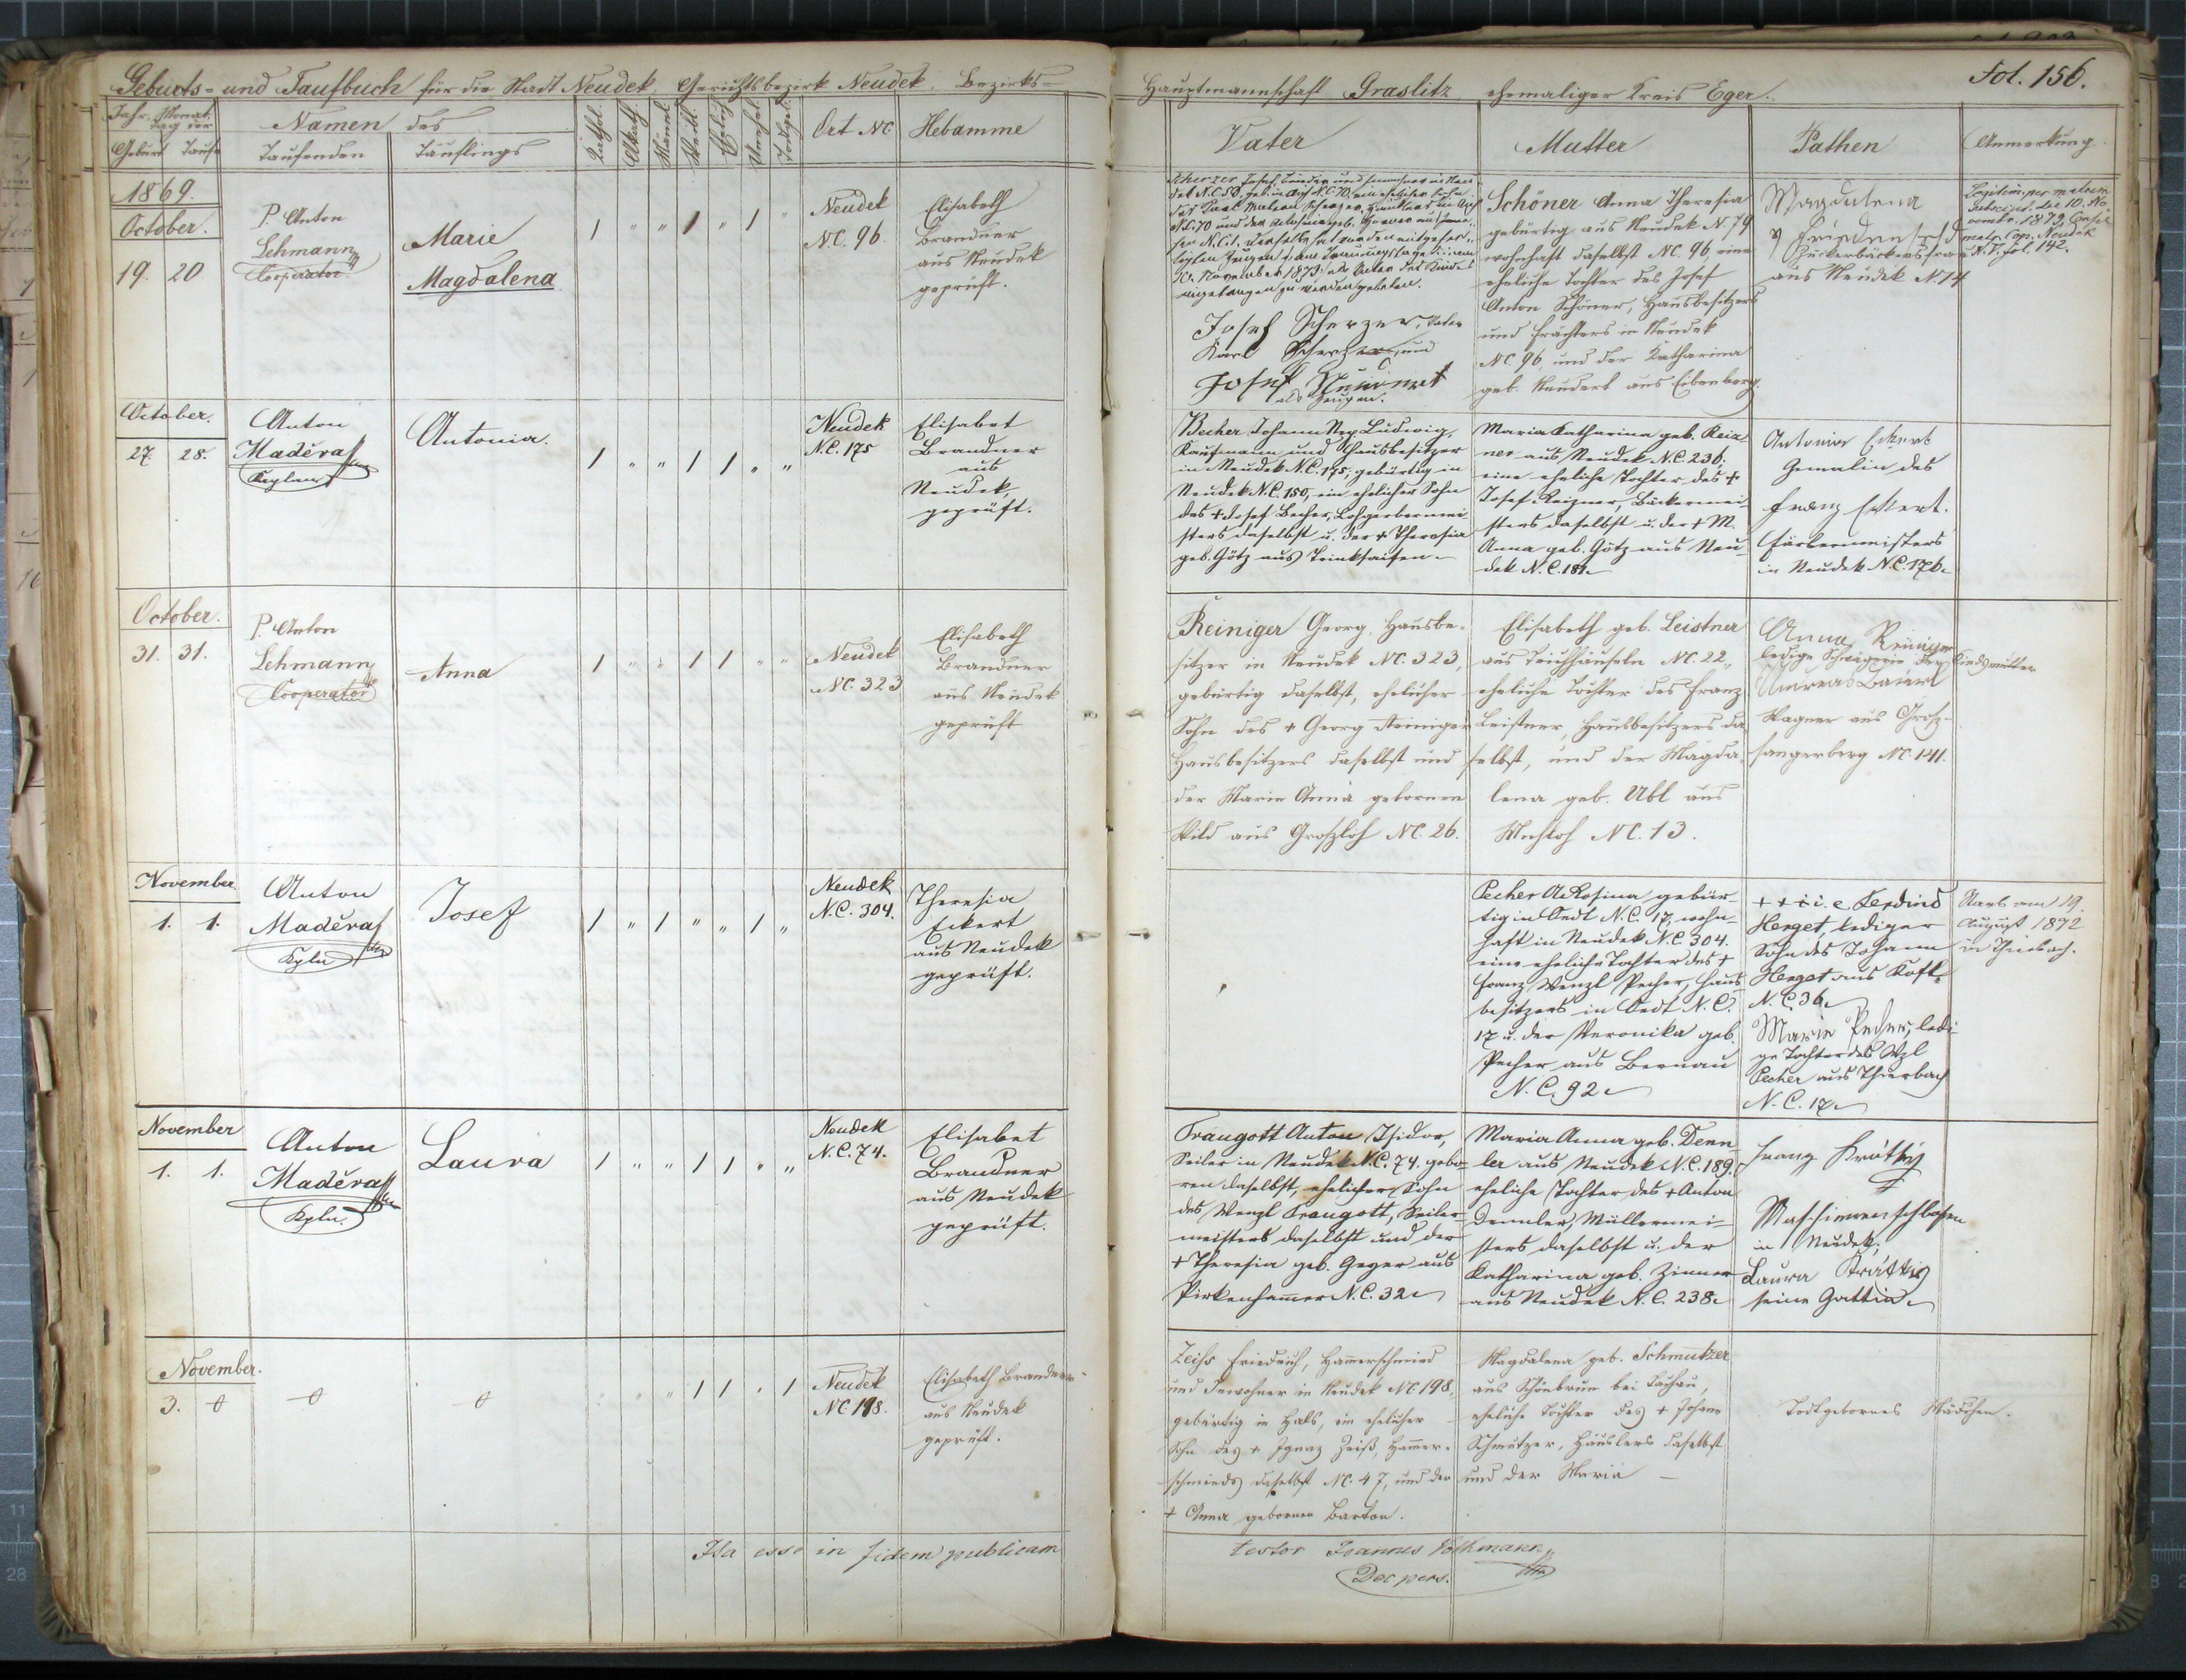 Geburts- und Taufbuch für die Stadt Neudek, Gerichtsbezirk Neudek, Bezirks-
Hauptmannschaft Graslitz ehemaliger Kreis Eger.
Fol. 156.
Jahr, Monat,
Tag der
Geburt Taufe
Namen des
Taufenden Täuflings
Kathol.
Akath.
Männl.
Weibl.
Ehelich
Unehel.
Todtgeb.
Ort NC.
Hebamme
Vater
Mutter
Pathen
Anmerkung
1869.
October.
19. 20
P. Anton
Lehmann
Cooperator
Marie
Magdalena
1 " " 1 " 1 "
Neudek
NC. 96.
Elisabeth
Brandner
aus Neudek
geprüft.
Scherzer Josef
November 1873 als Vater des Kindes
eingetragen zu werden gebeten.
Josef Scherzer, Vater
Karl Scherzer und
Josef
als Zeugen.
Schöner Anna Theresia
gebürtig aus Neudek N. 79
wohnhaft daselbst NC. 96, eine
eheliche Tochter des Josef
Anton Schöner, Hausbesitzers
und Frächters in Neudek
NC 96, und der Katharina
geb. Neudert aus Eibenberg.
Magdalena
Zuckerbäckersfrau
aus Neudek N. 14
fol. 142.
October.
27. 28.
Anton
Maděra
Kaplan
Antonia.
1 " " 1 1 " "
Neudek
N.C. 175
Elisabet
Brandner
aus
Neudek,
geprüft.
Becher Johann Nep. Ludwig,
Kaufmann und Hausbesitzer
in Neudek N.C. 175, gebürtig in
Neudek N.C. 150, ein ehelicher Sohn
des + Josef Becher, Lohgerbermei-
sters daselbst u. der + Theresia
geb. Götz aus Trinksaifen.
Maria Katharina geb. Reiz-
ner aus Neudek N.C. 236,
eine eheliche Tochter des +
Josef Reizner, Bäckermei-
sters daselbst u. der + M.
Anna geb. Götz aus Neu-
dek N.C. 181.
Antonia Eckert
Gemalin des
Franz Eckert.
Färbermeisters
in Neudek N.C. 176.
October.
31. 31.
P. Anton
Lehmann
Cooperator
Anna
1 " " 1 1 " "
Neudek
NC. 323
Elisabeth
Brandner
aus Neudek
geprüft
Reiniger Georg, Hausbe-
sitzer in Neudek NC. 323,
gebürtig daselbst, ehelicher
Sohn des + Georg Reiniger
Hausbesitzers daselbst und
der Marie Anna gebornen
Wild aus Großloh NC. 26.
Elisabeth geb. Leistner
aus Teichhäuseln NC. 22,
eheliche Tochter des Franz
Leistner, Hausbesitzers da-
selbst, und der Magda-
lena geb. Ubl aus
NC. 13.
Anna Reiniger
ledige Schwägerin der Kindsmutter
Andreas Baierl
Wagner aus Groß-
sangerberg NC. 141.
November.
1. 1.
Anton
Maděra
Kpln
Josef
1 " 1 " " 1 "
Neudek
N.C. 304.
Theresia
Eckert
aus Neudek
geprüft.
Pecher A. Rosina gebür-
tig in Oedt N.C. 17, wohn-
haft in Neudek N.C. 304.
eine eheliche Tochter des +
Franz Wenzl Pecher, Haus-
besitzers in Oedt N.C.
17 u. der Veronika geb.
Pecher aus Bernau
N.C. 92
+++ i. e. Ferdind
Herget, lediger
Sohn des Johann
Herget aus Koft
N.C. 36
Marie Pecher, ledi-
ge Tochter des Wzl
Pecher aus Thierbach
N.C. 17.
Starb am 19.
August 1872
in Thierbach.
November
1. 1.
Anton
Maděra
Kpln.
Laura
1 " " 1 1 " "
Neudek
N.C. 74.
Elisabet
Brandner
aus Neudek
geprüft.
Traugott Anton Isidor,
Seiler in Neudek N.C. 74. gebo-
ren daselbst, ehelicher Sohn
des Wenzl Traugott, Seiler-
meisters daselbst und der
+ Theresia geb. Geyer aus
Pirkenhammer N.C. 32.
Maria Anna geb. Denn-
ler aus Neudek N.C. 189.
eheliche Tochter des + Anton
Dennler, Müllermei-
sters daselbst u. der
Katharina geb. Zinner
aus Neudek N.C. 238.
Franz
Maschinenschlosser
in Neudek,
Laura
seine Gattin.
November.
3.
" " " 1 1 " 1
Neudek
NC 198.
Elisabeth Brandner
aus Neudek
geprüft.
Zeihs Friedrich, Hammerschmied
und Inwohner in Neudek NC 198,
gebürtig in Hals, ein ehelicher
Sohn des + Ignaz Zeiß, Hammer-
schmieds daselbst NC. 47, und der
+ Anna gebornen Barton.
Magdalena geb. Schmutzer
aus Schönbrunn bei Tachau,
eheliche Tochter des + Johann
Schmutzer, Häuslers daselbst
und der Maria —
Todtgebornes Mädchen.
Ita esse in fidem publicam
testor Joannes
Dec. pers.